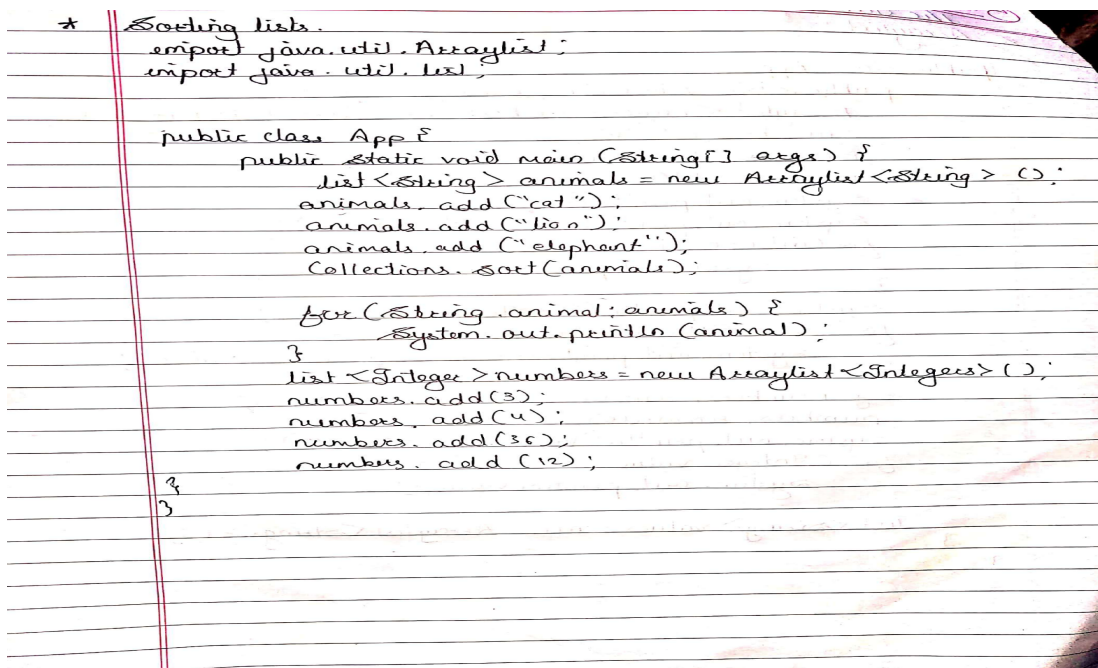 * Sorting lists.
import java.util.Arraylist;
import java.util.list;
public class App {
public static void main (String[] args) {
list <String> animals = new Arraylist <String> ();
animals.add ("cat");
animals.add ("lion");
animals.add ("elephant");
Collections.sort(animals);
for (String animal: animals) {
System.out.println (animal);
}
list <Integer> numbers = new Arraylist <Integers> ();
numbers.add(3);
numbers.add(4);
numbers.add(36);
numbers.add (12);
}
}